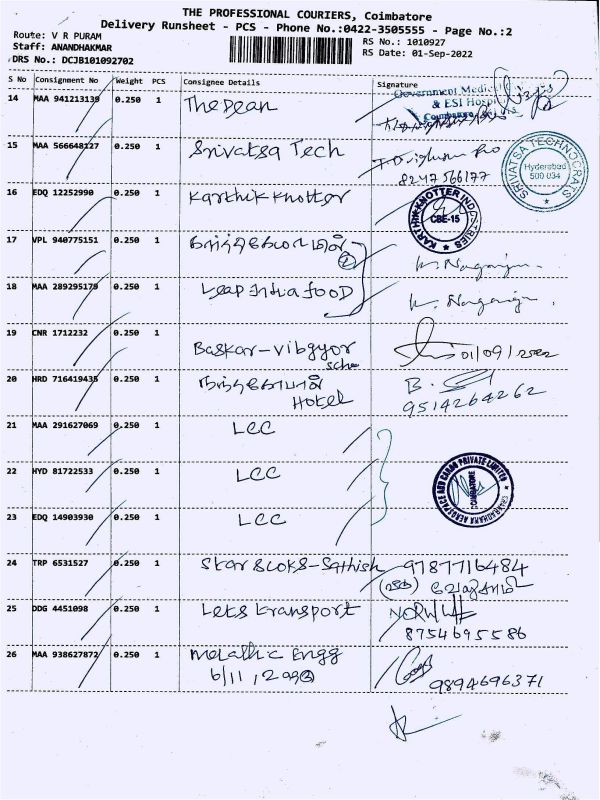 THE PROFESSIONAL COURIERS, Coimbatore
Delivery Runsheet - PCS - Phone No.:0422-3505555 - Page No.:2
Route: V R PURAM
Staff: ANANDHAKMAR
DRS No.: DCJB101092702
RS No.: 1010927
RS Date: 01-Sep-2022
S No Consignment No Weight PCS Consignee Details Signature
14 MAA 941213139 0.250 1 The Dean
Government Medical
& ESI Hospital
Coimbatore
15 MAA 566648127 0.250 1 Srivatsa Tech
8247566177
SRIVATSA TECHNOCRATS
Hyderabad
500 034
16 EDQ 12252990 0.250 1 Karthik Knotter
KARTHIK KNOTTER INDUSTRIES
CBE-15
17 VPL 940775151 0.250 1
②
18 MAA 289295175 0.250 1 Leap India fooD
19 CNR 1712232 0.250 1 Baskar-Vibgyor
01/09/2022
20 HRD 716419435 0.250 1
Hotel
9514264262
21 MAA 291627069 0.250 1 LCC
22 HYD 81722533 0.250 1 LCC
AEROSPACE AND CARGO PRIVATE LIMITED
COIMBATORE
23 EDQ 14903930 0.250 1 LCC
24 TRP 6531527 0.250 1 9787716484
25 DDG 4451098 0.250 1 Lets transport
8754695586
26 MAA 938627872 0.250 1 Metallic Engg
9894696371